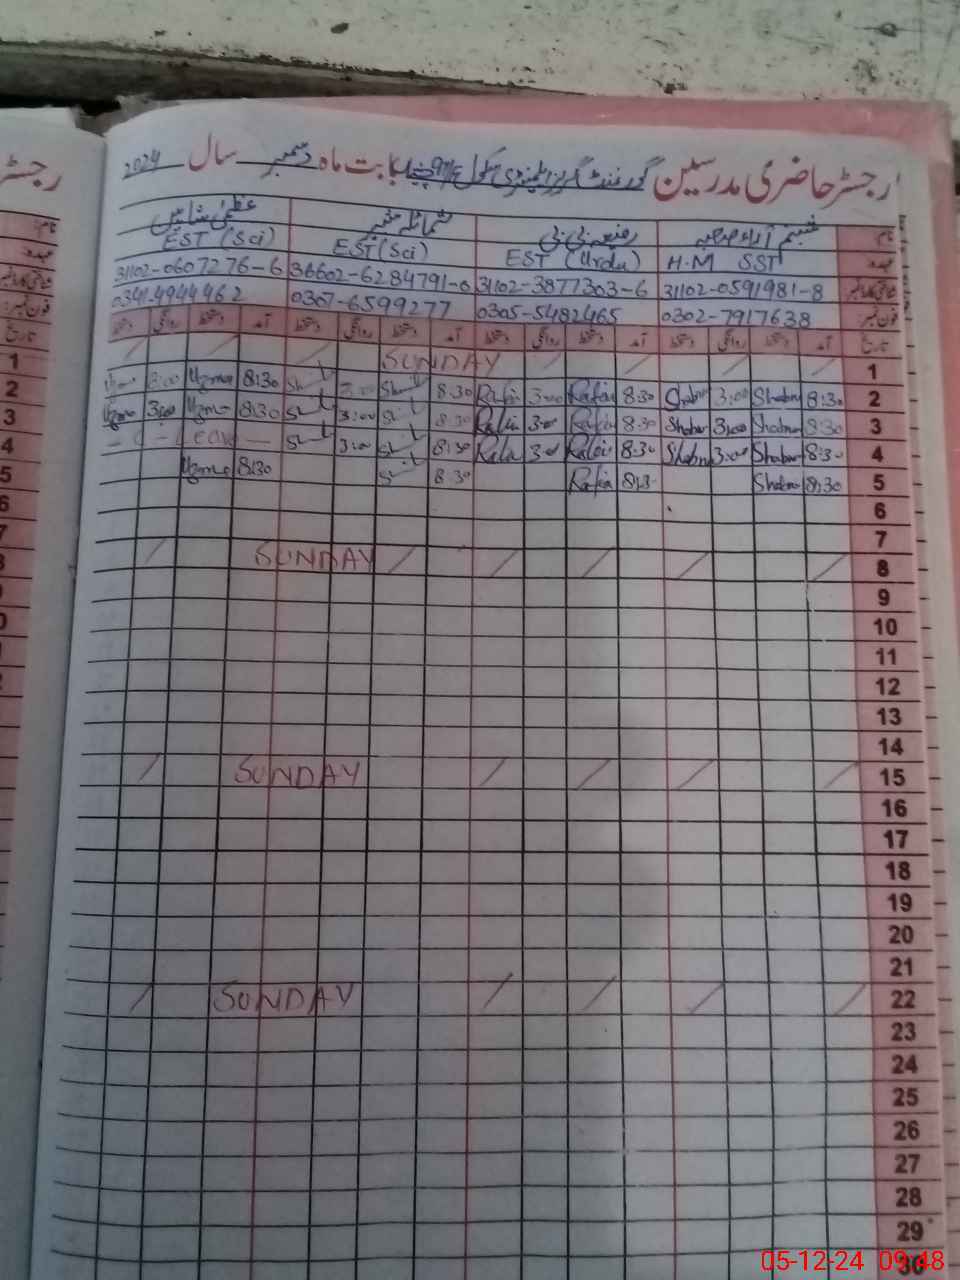 رجسٹر حاضری مدرسین گورنمنٹ گرلز ایلیمنٹری سکول بابت ماہ دسمبر سال 2024
نام شبنم آراء رفیعہ بی بی شمائلہ منیر عظمیٰ شاہین
عہدہ H.M SST EST (Urdu) EST (Sci) EST (Sci)
31102-0591981-8 31102-3877303-6 36602-6284791-0 31102-0607276-6
فون نمبر: 0302-7917638 0305-5482465 0307-6599277 0341-4944462
تاریخ آمد دستخط روانگی دستخط آمد دستخط روانگی دستخط آمد دستخط روانگی دستخط آمد دستخط روانگی دستخط
1 SUNDAY
2 8:30 Shabnam 3:00 8:30 Rafia 3:00 Rafia 8:30 3:00 8:30 Uzma 3:00 Uzma
3 8:30 Shabnam 3:00 8:30 Rafia 3:00 Rafia 8:30 3:00 8:30 Uzma 3:00 Uzma
4 8:30 3:00 8:30 Rafia 3:00 8:30 3:00 - C - Leave -
5 8:30 8:30 Rafia 8:30 8:30 Uzma
6
7
8 SUNDAY
9
10
11
12
13
14
15 SUNDAY
16
17
18
19
20
21
22 SUNDAY
23
24
25
26
27
28
29
30
05-12-24 09:48